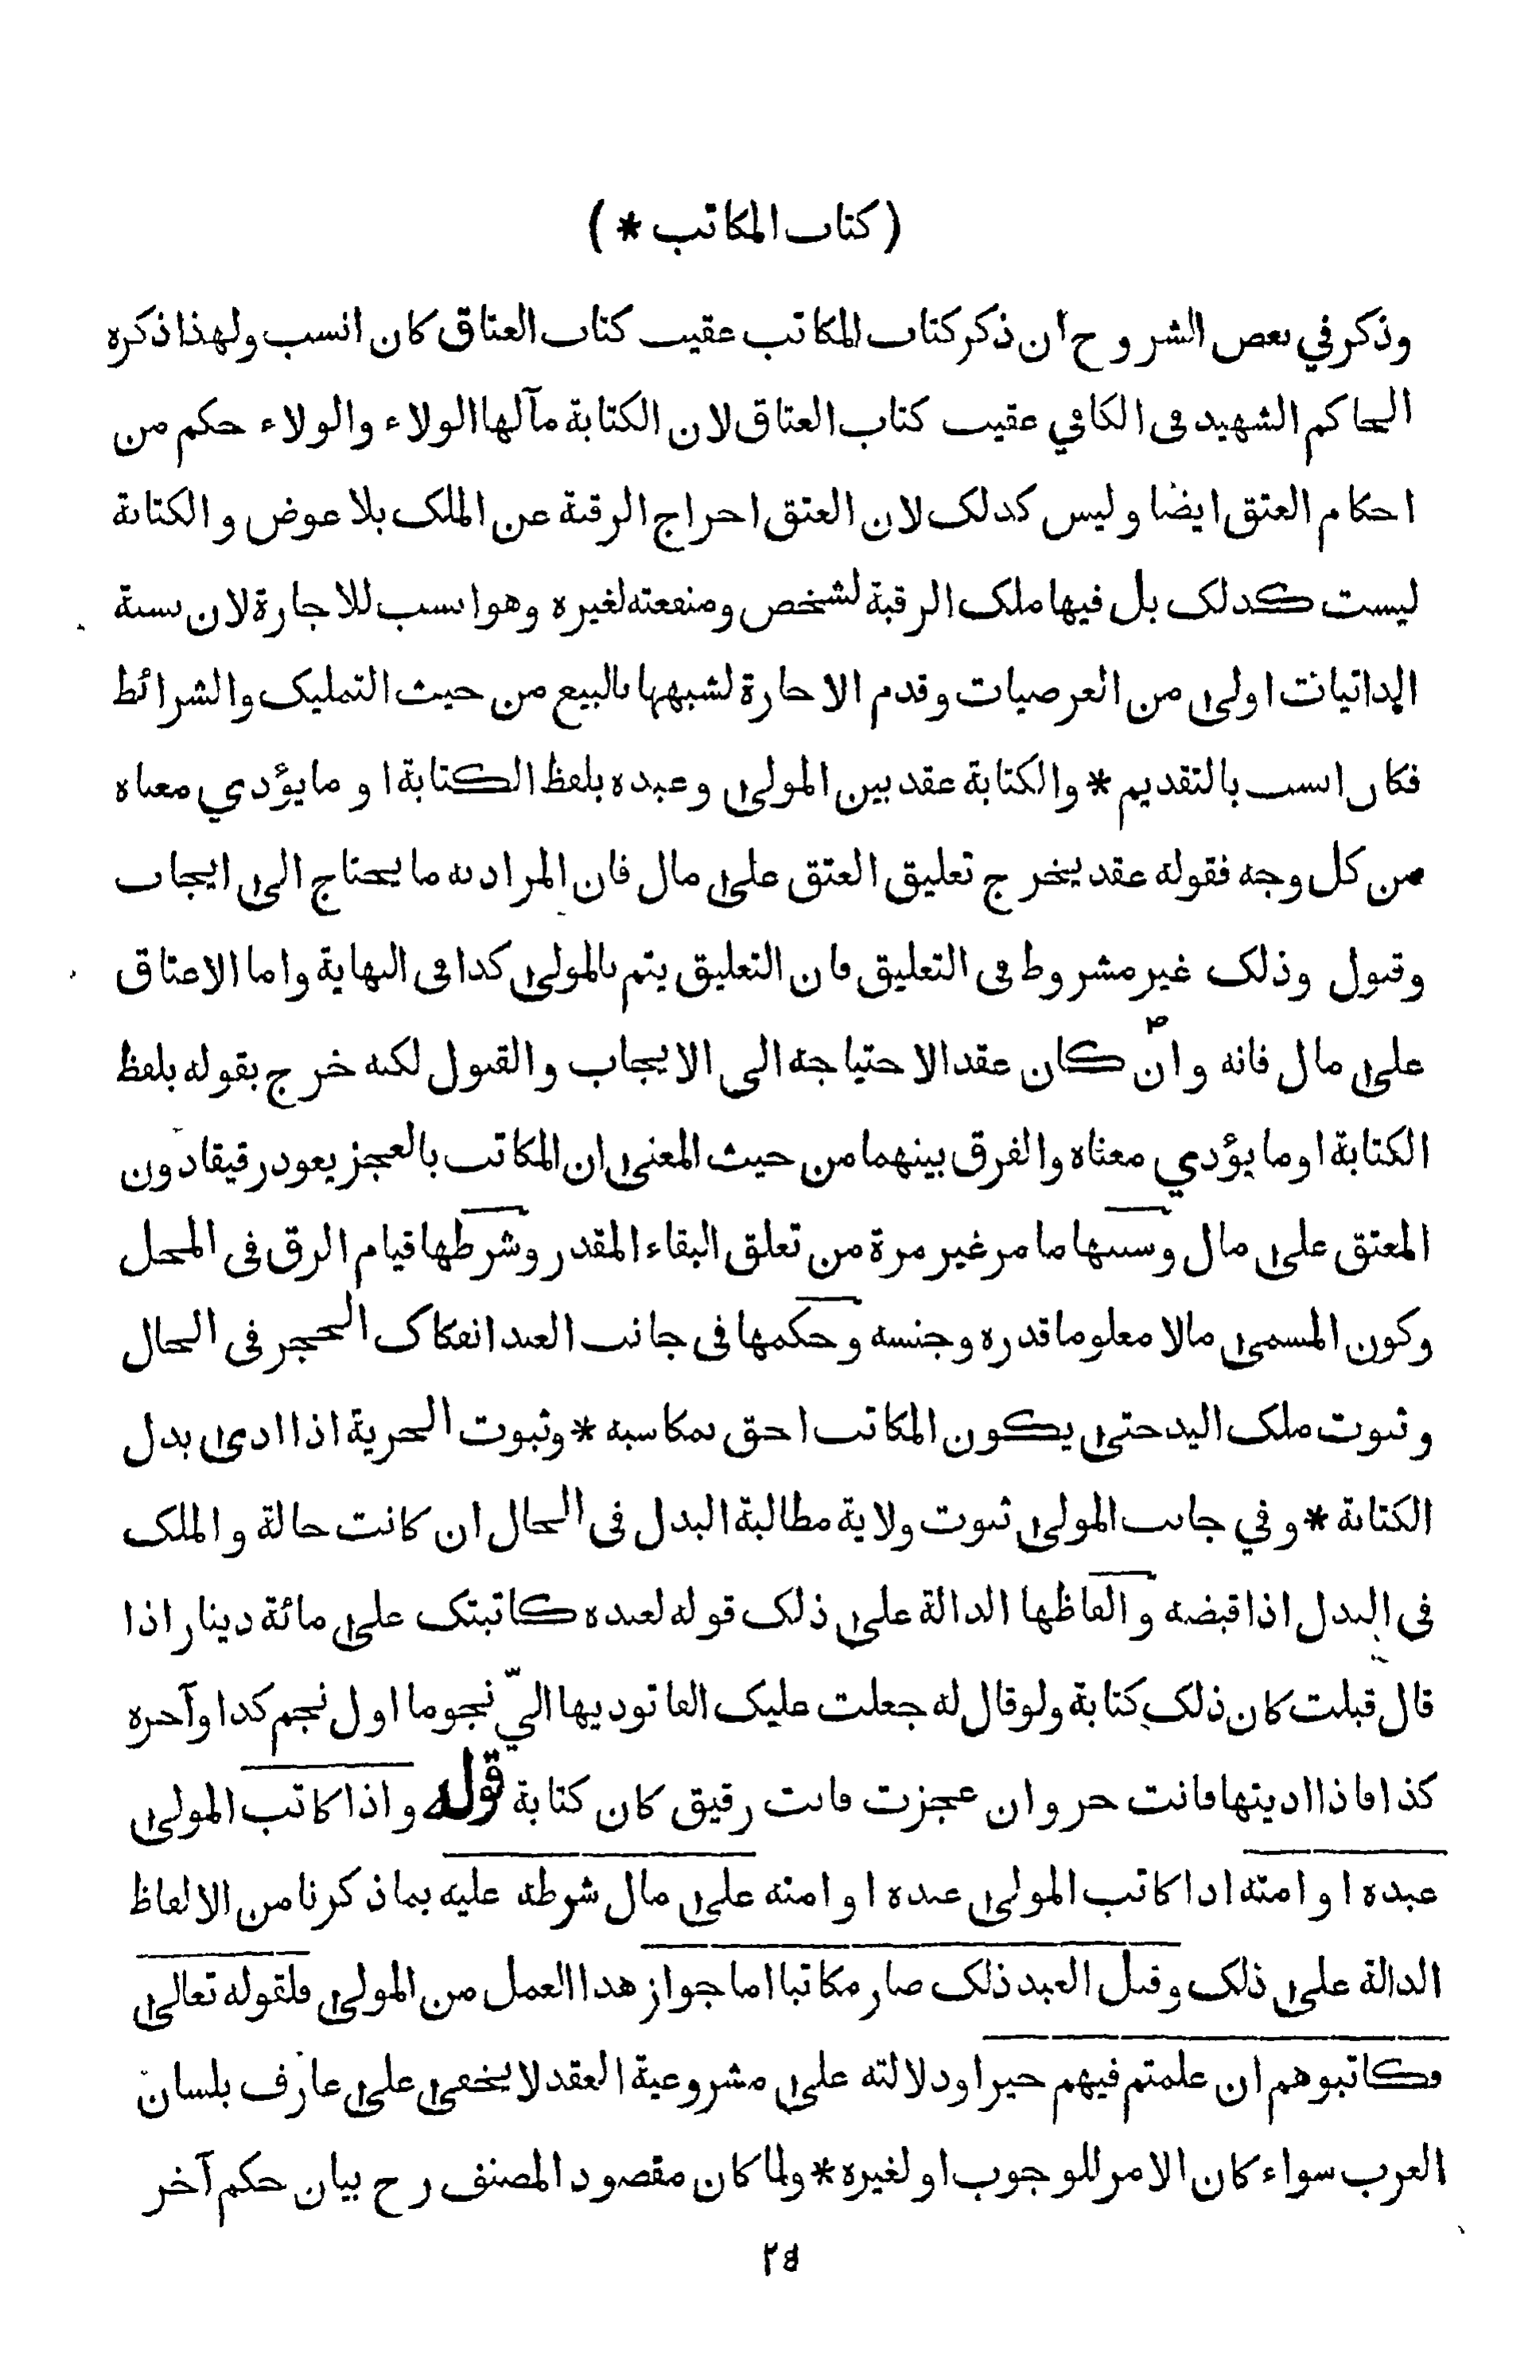 ( كتاب المكاتب * )
وذكر في بعض الشروح ان ذكر كتاب المكاتب عقيب كتاب العتاق كان انسب ولهذا ذكره
الحاكم الشهيد في الكافي عقيب كتاب العتاق لان الكتابة مآلها الولاء والولاء حكم من
احكام العتق ايضا وليس كذلك لان العتق اخراج الرقبة عن الملك بلا عوض والكتابة
ليست كذلك بل فيها ملك الرقبة لشخص ومنفعته لغيره وهو انسب للاجارة لان نسبة
الذاتيات اولى من العرضيات وقدم الاجارة لشبهها بالبيع من حيث التمليك والشرائط
فكان انسب بالتقديم * والكتابة عقد بين المولى وعبده بلفظ الكتابة او ما يؤدي معناه
من كل وجه فقوله عقد يخرج تعليق العتق على مال فان المراد به ما يحتاج الى ايجاب
وقبول وذلك غير مشروط في التعليق فان التعليق يتم بالمولى كذا في النهاية واما الاعتاق
على مال فانه وان كان عقدا لاحتياجه الى الايجاب والقبول لكنه خرج بقوله بلفظ
الكتابة او ما يؤدي معناه والفرق بينهما من حيث المعنى ان المكاتب بالعجز يعود رقيقا دون
المعتق على مال وسببها ما مر غير مرة من تعلق البقاء المقدر وشرطها قيام الرق في المحل
وكون المسمى مالا معلوما قدره وجنسه وحكمها في جانب العبد انفكاك الحجر في الحال
وثبوت ملك اليد حتى يكون المكاتب احق بمكاسبه * وثبوت الحرية اذا ادى بدل
الكتابة * وفي جانب المولى ثبوت ولاية مطالبة البدل في الحال ان كانت حالة والملك
في البدل اذا قبضه والفاظها الدالة على ذلك قوله لعبده كاتبتك على مائة دينار اذا
قال قبلت كان ذلك كتابة ولو قال له جعلت عليك الفا توديها اليّ نجوما اول نجم كذا وآخره
كذا فاذا اديتها فانت حر وان عجزت فانت رقيق كان كتابة قوله واذا كاتب المولى
عبده او امته اذا كاتب المولى عبده او امته على مال شرطه عليه بما ذكرنا من الالفاظ
الدالة على ذلك وقبل العبد ذلك صار مكاتبا اما جواز هذا العمل من المولى فلقوله تعالى
فكاتبوهم ان علمتم فيهم خيرا ودلالته على مشروعية العقد لا يخفى على عارف بلسان
العرب سواء كان الامر للوجوب او لغيره * ولما كان مقصود المصنف رح بيان حكم آخر